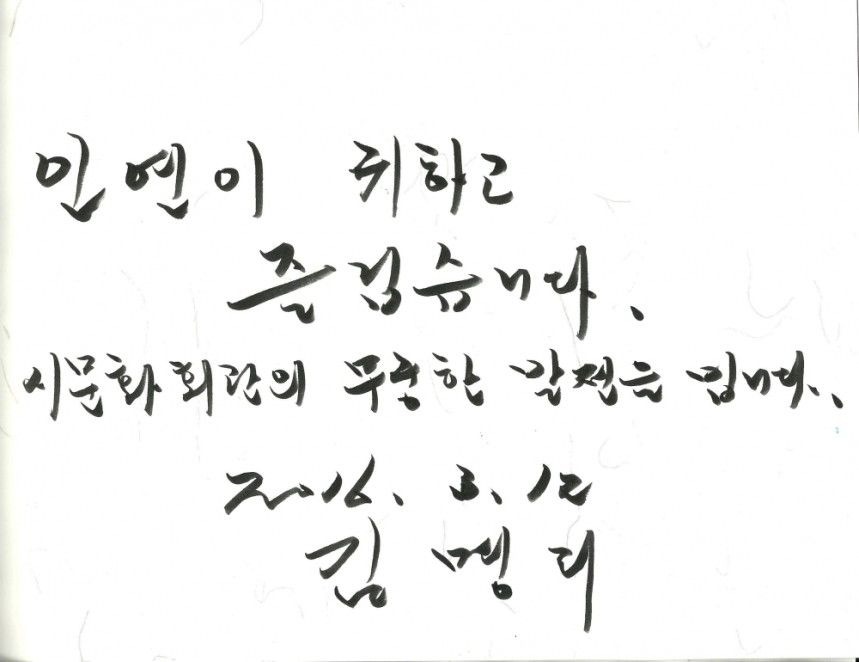 인연이 귀하고
즐겁습니다.
시문화회관의 무궁한 발전을 빕니다..
2016. 3. 12
김 명 리